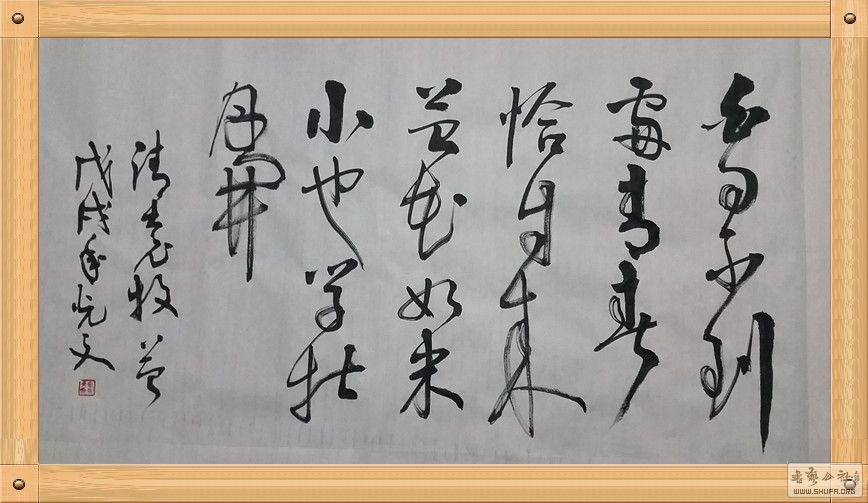 白日不到
处青春
恰自来
苔花如米
小也学牡
丹開
清袁枚苔
戊戌年悦文
書法公社
WWW.SHUFA.ORG